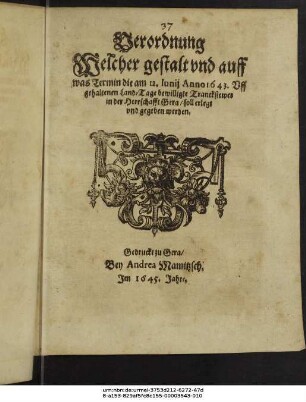 37
Verordnung
Welcher gestalt vnd auff
was Termin die am 12. Iunij Anno 1643. Vff
gehaltenem Land/Tage bewilligte Trancksteuer
in der Herrschafft Gera/soll erlegt
vnd gegeben werden.
Gedruckt zu Gera/
Bey Andrea Mamitzsch,
Im 1645. Jahre.
urn:nbn:de:urmel-3753d212-6272-47d
8-a153-829af5fc8c155-00003648-010